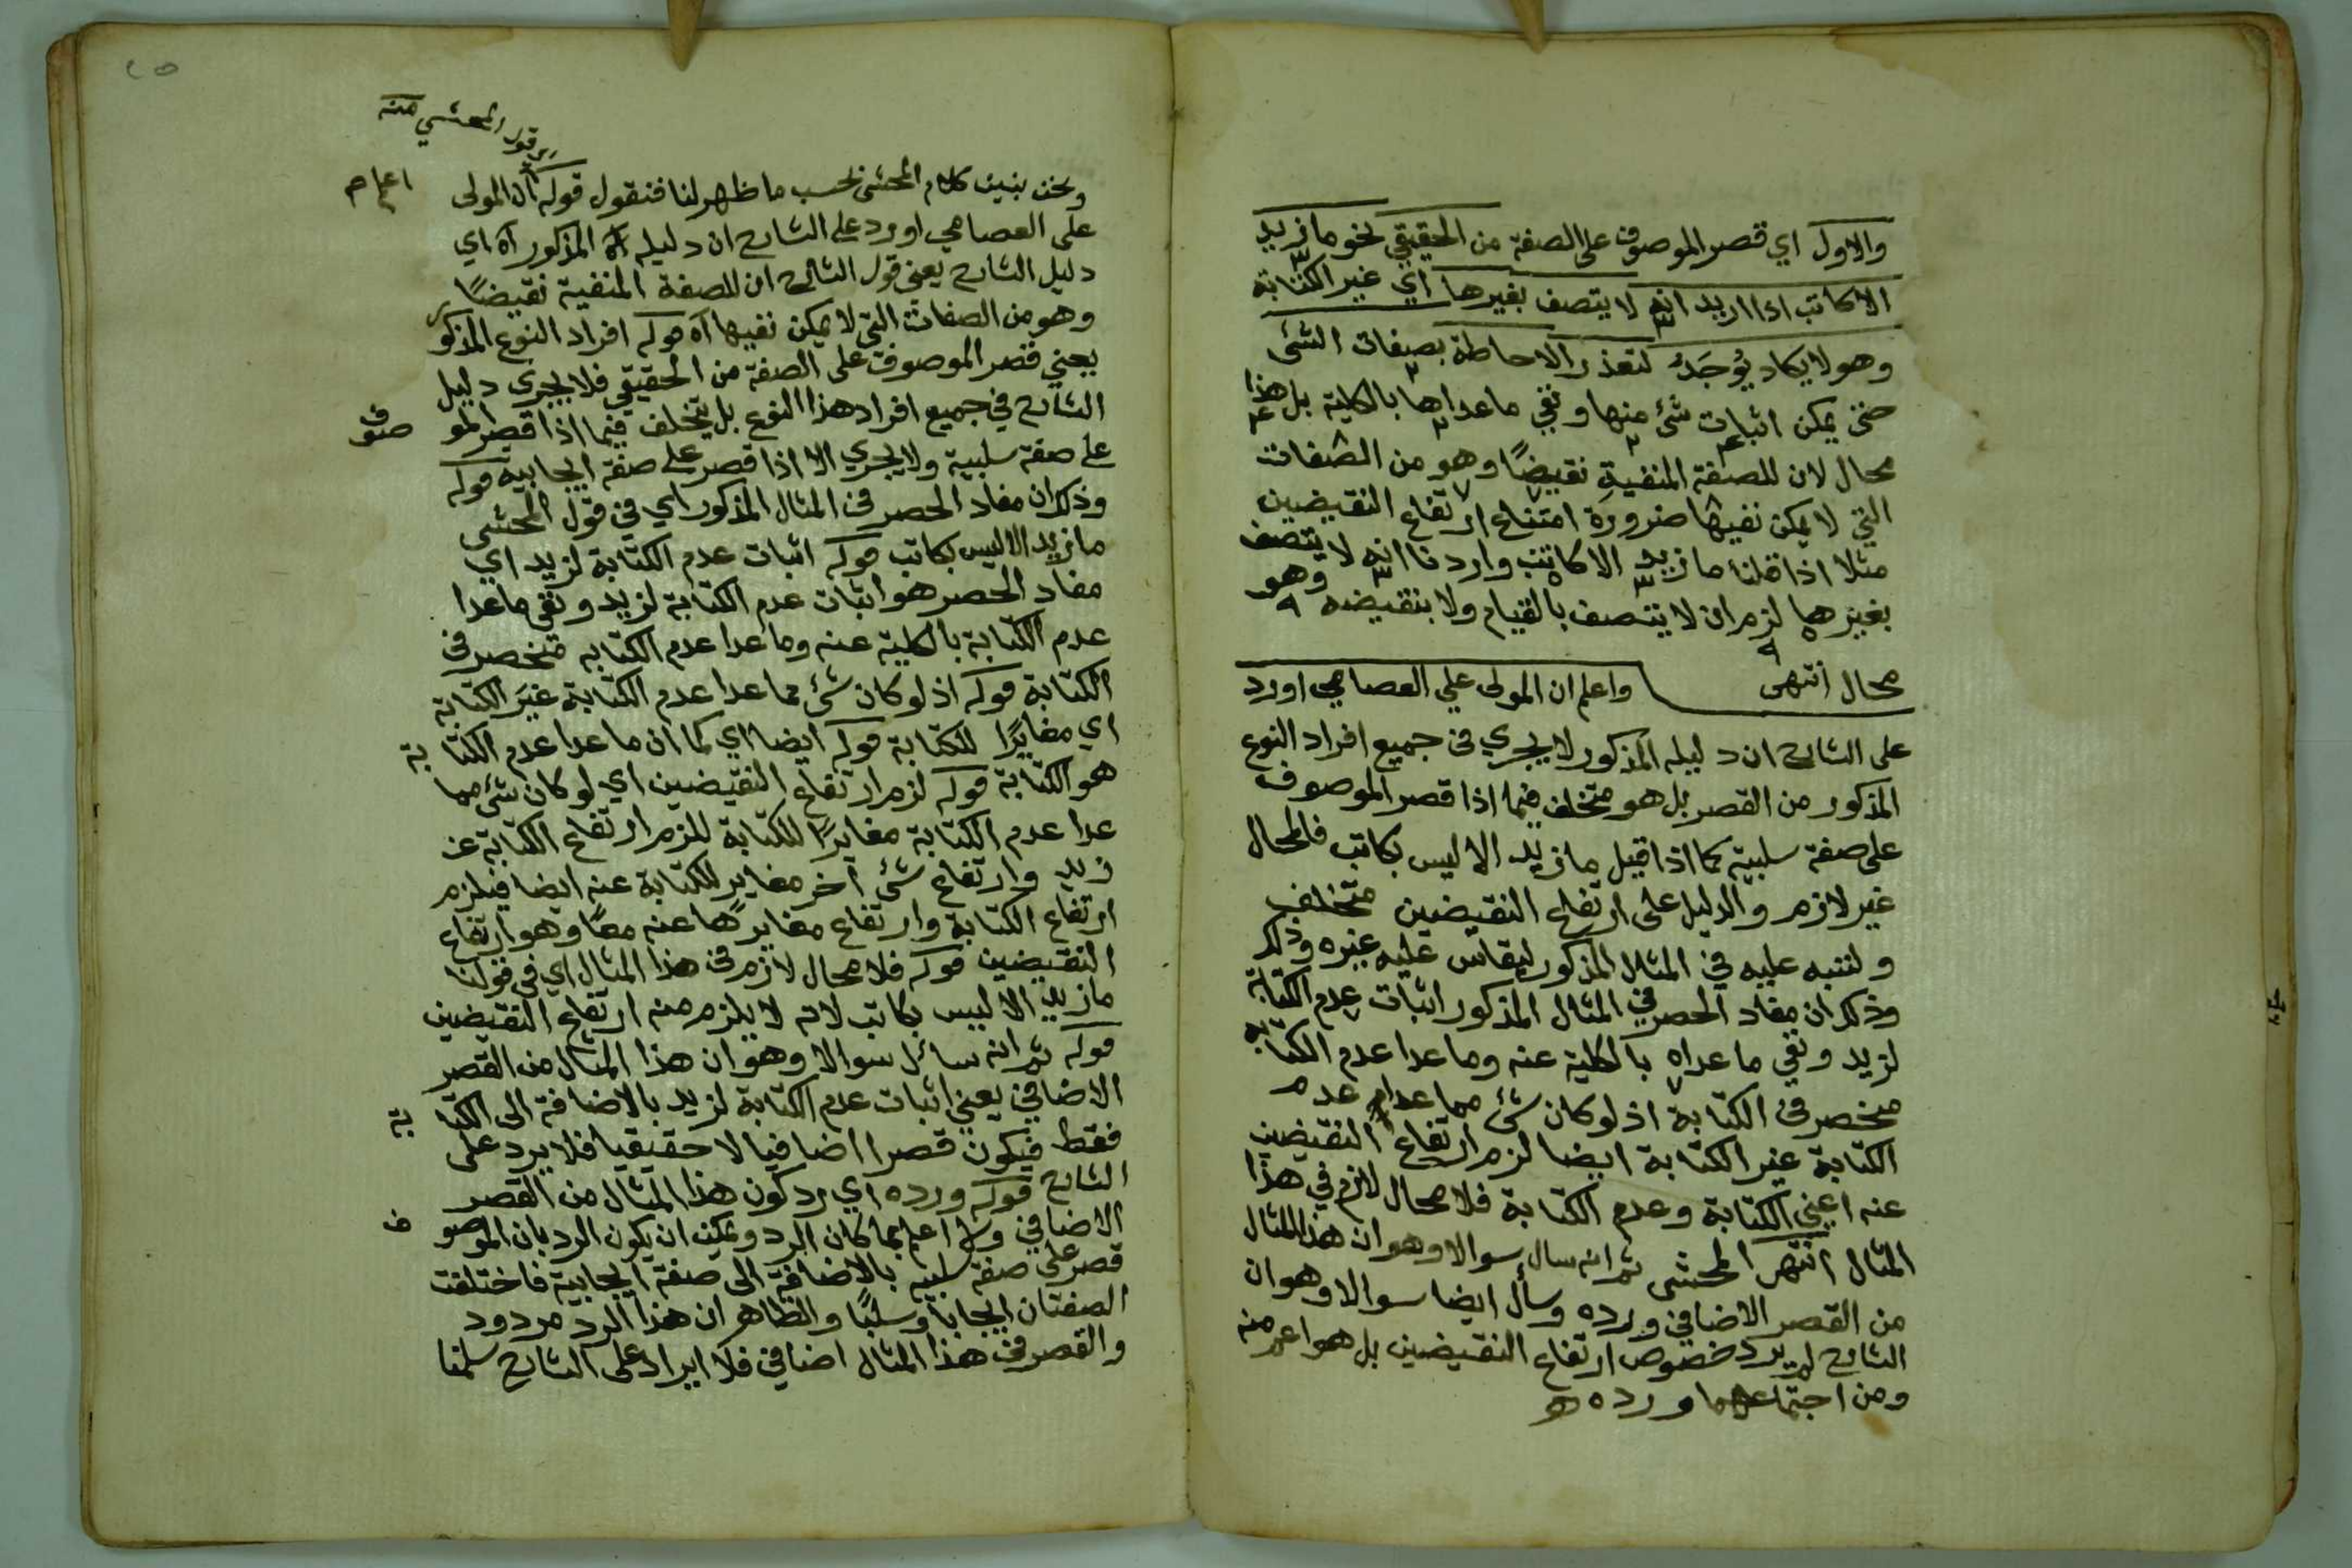 والاول اي قصر الموصوف على الصفة من الحقيقي نحو ما زيد
الا كاتب اذا اريد انه لا يتصف بغيرها اي غير الكتابة
وهو لا يكاد يُوجَدُ لتعذر الاحاطة بصفات الشئ
حتى يمكن اثبات شئ منها ونفي ما عداها بالكلية بل هذا
محال لان للصفة المنفية نقيضًا وهو من الصفات
التي لا يمكن نفيها ضرورة امتناع ارتفاع النقيضين
مثلا اذا قلنا ما زيد الا كاتب واردنا انه لا يتصف
بغيرها لزم ان لا يتصف بالقيام ولا بنقيضه وهو
محال انتهى واعلم ان المولى علي العصامي اورد
على الشارح ان دليله المذكور لا يجري في جميع افراد النوع
المذكور من القصر بل هو متخلف فيما اذا قصر الموصوف
على صفة سلبية كما اذا قيل ما زيد الا ليس بكاتب فالمحال
غير لازم والدليل على ارتفاع النقيضين متخلف
ولننبه عليه في المثال المذكور ليقاس عليه غيره وذلك
وذلك ان مفاد الحصر في المثال المذكور اثبات عدم الكتابة
لزيد ونفي ما عداه بالكلية عنه وما عدا عدم الكتابة
منحصر في الكتابة اذ لو كان شئ مما عدا عدم
الكتابة غير الكتابة ايضا لزم ارتفاع النقيضين
عنه اعني الكتابة وعدم الكتابة فلا محال لازم في هذا
المثال انتهى المحشي ثم انه سال سوالا وهو ان هذا المثال
من القصر الاضافي ورده وسأل ايضا سوالا وهو ان
الشارح لم يرد خصوص ارتفاع النقيضين بل هو اعم منه
ومن اجتماعهما ورده
٢٥
قول المحشي منه
ونحن نبين كلام المحشي بحسب ما ظهر لنا فنقول قوله ان المولى
على العصامي اورد على الشارح ان دليله المذكور اه اي
دليل الشارح يعني قول الشارح ان للصفة المنفية نقيضًا
وهو من الصفات التي لا يمكن نفيها اه قوله افراد النوع المذكور
يعني قصر الموصوف على الصفة من الحقيقي فلا يجري دليل
الشارح في جميع افراد هذا النوع بل يتخلف فيما اذا قصر الموصوف
على صفة سلبية ولا يجري الا اذا قصر على صفة ايجابية قوله
وذلك ان مفاد الحصر في المثال المذكور اي في قول المحشي
ما زيد الا ليس بكاتب قوله اثبات عدم الكتابة لزيد اي
مفاد الحصر هو اثبات عدم الكتابة لزيد ونفي ما عدا
عدم الكتابة بالكلية عنه وما عدا عدم الكتابه منحصر في
الكتابة قوله اذ لو كان شئ مما عدا عدم الكتابة غيَر الكتابة
اي مغايرًا للكتابة قوله ايضا اي كما ان ما عدا عدم الكتابة
هو الكتابة قوله لزم ارتفاع النقيضين اي لو كان شئ مما
عدا عدم الكتابة مغايرًا للكتابة للزم ارتفاع الكتابة عن
زيد وارتفاع شئ اخر مغاير للكتابة عنه ايضا فيلزم
ارتفاع الكتابة وارتفاع مغايرها عنه معًا وهو ارتفاع
النقيضين قوله فلا محال لازم في هذا المثال اي في قولنا
ما زيد الا ليس بكاتب لانه لا يلزم منه ارتفاع النقيضين
قوله ثم انه سائل سوالا وهو ان هذا المثال من القصر
الاضافي يعني اثبات عدم الكتابة لزيد بالاضافة الى الكتابة
فقط فيكون قصرا اضافيا لا حقيقيا فلا يرد على
الشارح قوله ورده اي رد كون هذا المثال من القصر
الاضافي والله اعلم بما كان الرد ويمكن ان يكون الرد بان الموصوف
قصر على صفة سلبية بالاضافة الى صفة ايجابية فاختلفت
الصفتان ايجابا وسلبًا والظاهر ان هذا الرد مردود
والقصر في هذا المثال اضافي فلا ايراد على الشارح سلمنا